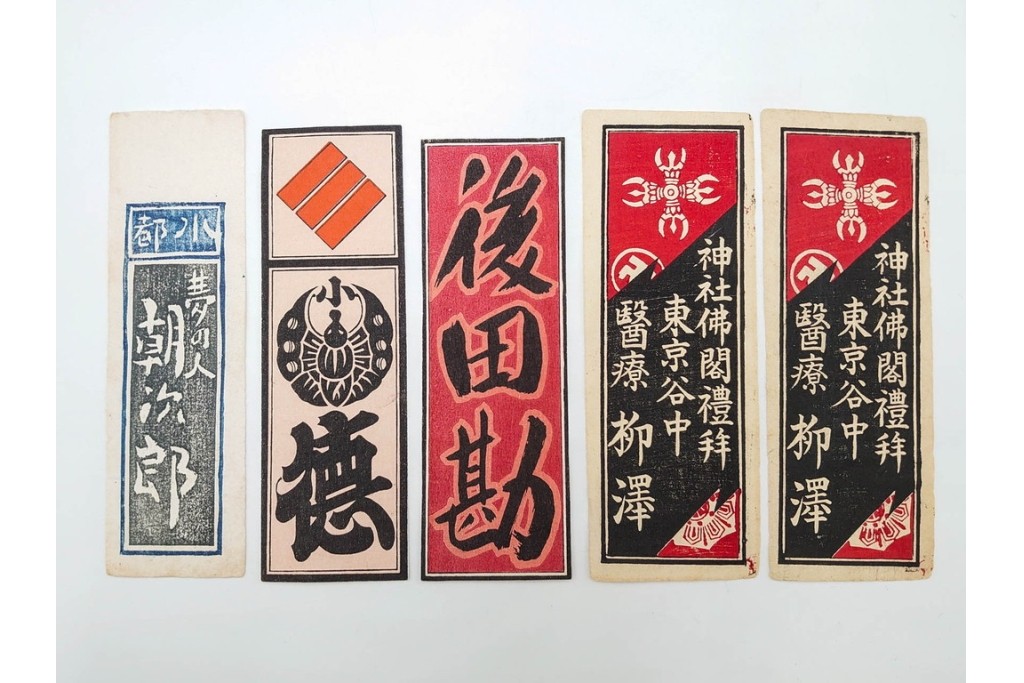 水都
夢の人
朝次郎
小
德
後田勘
神社佛閣禮拜
東京谷中
醫療 柳澤
神社佛閣禮拜
東京谷中
醫療 柳澤